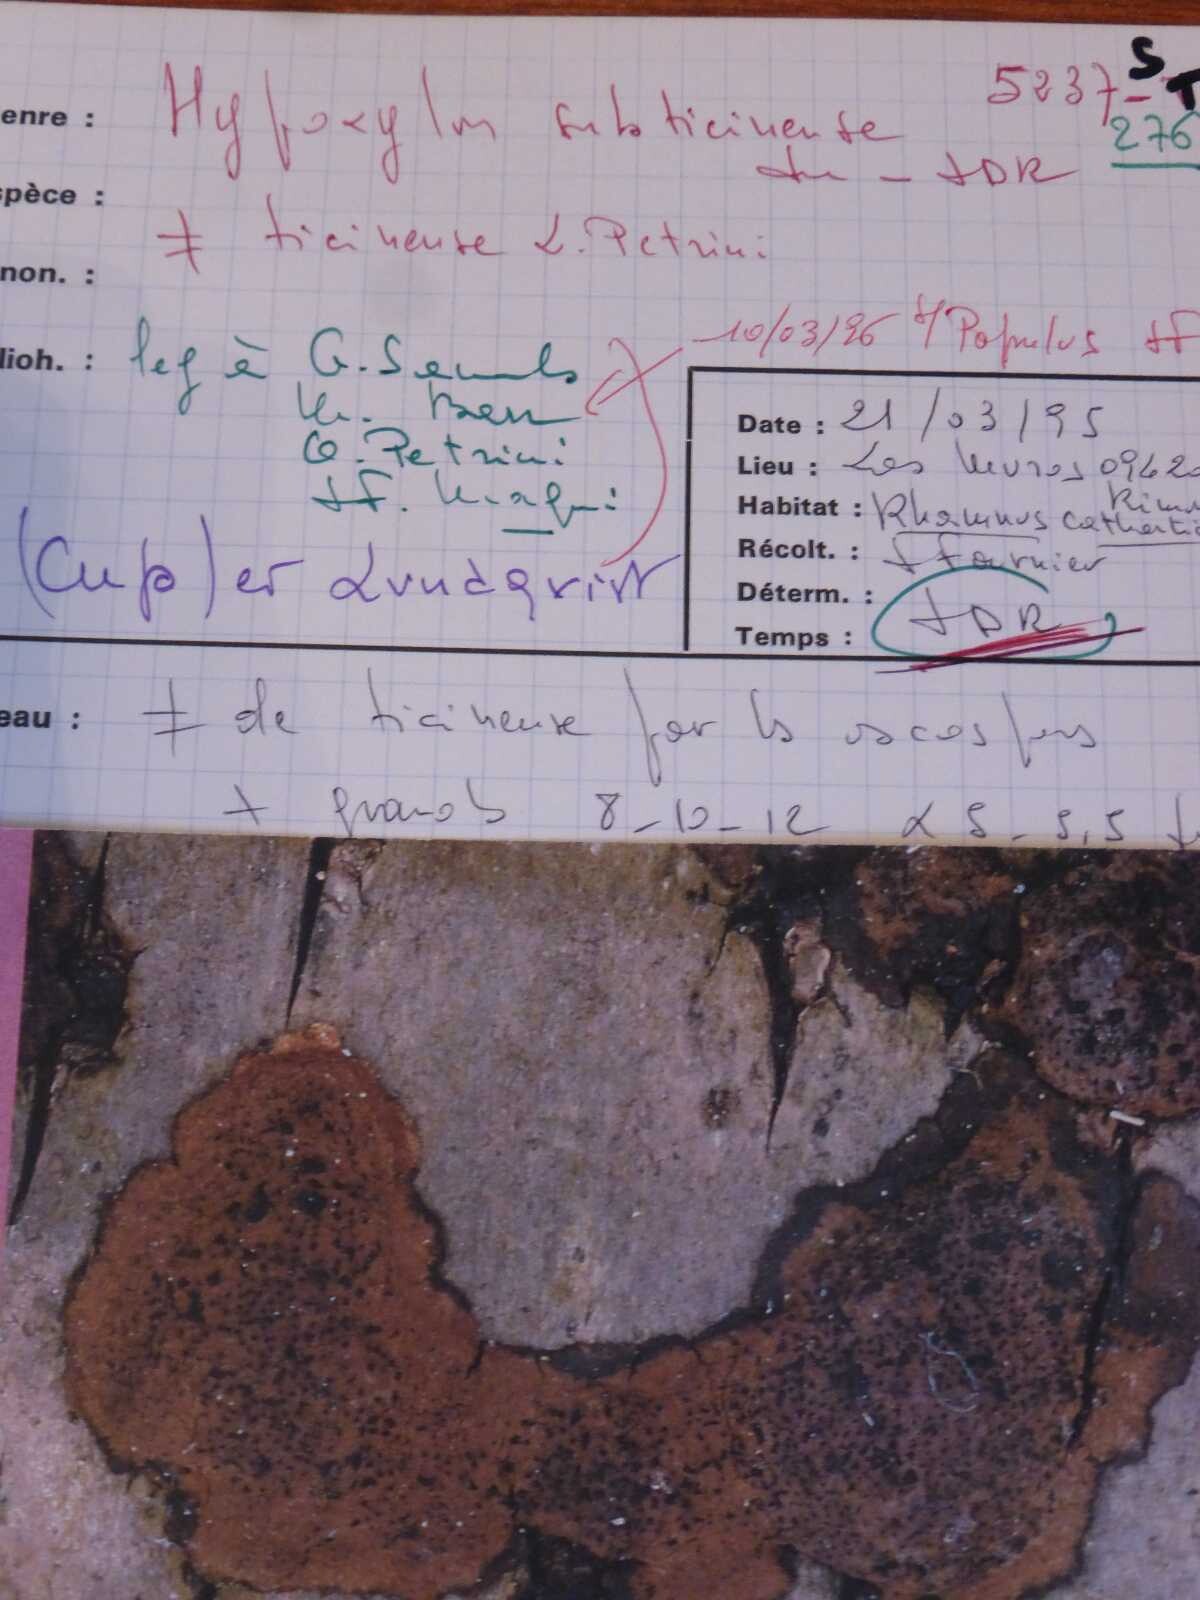 5237-S T
276
enre : Hypoxylon subticinense
JDR
spèce :
≠ ticinense L. Petrini
non. :
10/03/96 s/ Populus JF
lioh. : leg à G. Samuels
O. Petrini
JF. Magni
(Cup) et Lundqvist
Date : 21/03/95
Lieu : Les Muros 0942
Habitat : Rhamnus catharti
Rimo
Récolt. : J Fournier
Déterm. : JDR
Temps :
eau : ≠ de ticinense par ls ascospres
+ grands 8-10-12 x 5-5,5